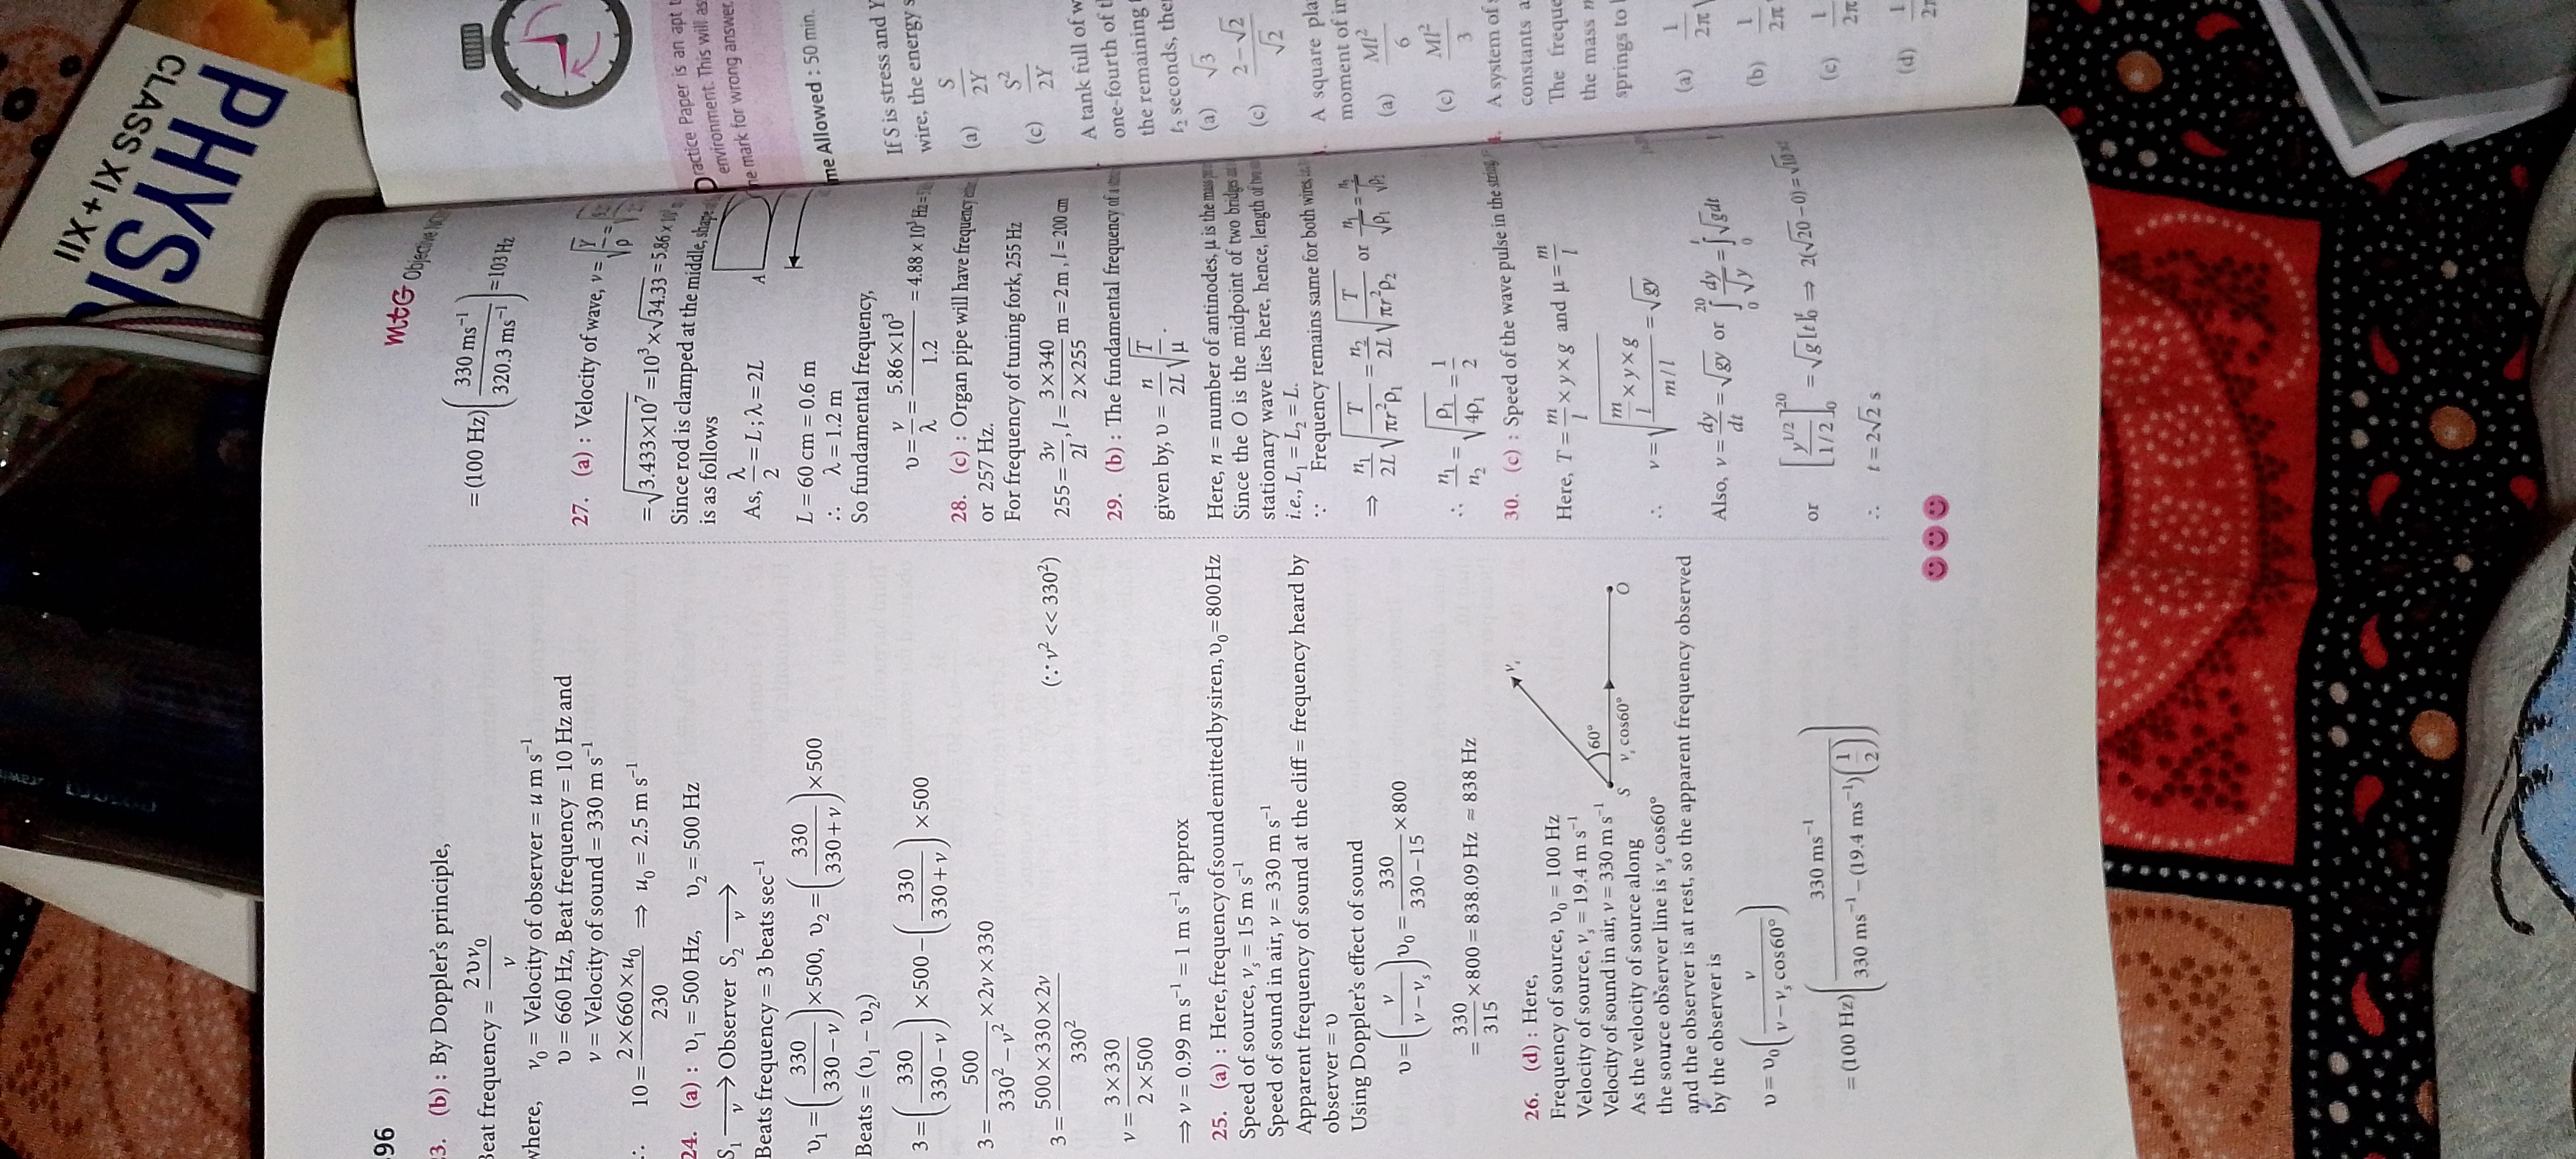 PHYSI
CLASS XI+XII
96
MtG Objective
3. (b) : By Doppler's principle,
Beat frequency = 2υv₀/v
where, v₀ = Velocity of observer = u m s⁻¹
υ = 660 Hz, Beat frequency = 10 Hz and
v = Velocity of sound = 330 m s⁻¹
∴ 10 = (2×660×u₀)/230 ⇒ u₀ = 2.5 m s⁻¹
24. (a) : υ₁ = 500 Hz, υ₂ = 500 Hz
S₁ —v→ Observer S₂ —v→
Beats frequency = 3 beats sec⁻¹
υ₁ = (330/(330−v))×500, υ₂ = (330/(330+v))×500
Beats = (υ₁ − υ₂)
3 = (330/(330−v))×500 − (330/(330+v))×500
3 = 500/(330²−v²) ×2v×330
3 = (500×330×2v)/330² (∵ v² << 330²)
v = (3×330)/(2×500)
⇒ v = 0.99 m s⁻¹ = 1 m s⁻¹ approx
25. (a) : Here, frequency of sound emitted by siren, υ₀ = 800 Hz
Speed of source, vₛ = 15 m s⁻¹
Speed of sound in air, v = 330 m s⁻¹
Apparent frequency of sound at the cliff = frequency heard by
observer = υ
Using Doppler's effect of sound
υ = (v/(v−vₛ))υ₀ = 330/(330−15) ×800
= 330/315 ×800 = 838.09 Hz ≈ 838 Hz
26. (d) : Here,
Frequency of source, υ₀ = 100 Hz
Velocity of source, vₛ = 19.4 m s⁻¹
Velocity of sound in air, v = 330 m s⁻¹
As the velocity of source along
the source observer line is vₛ cos60°
and the observer is at rest, so the apparent frequency observed
by the observer is
vₛ
60°
S vₛ cos60° O
υ = υ₀(v/(v−vₛ cos60°))
= (100 Hz)(330 ms⁻¹/(330 ms⁻¹−(19.4 ms⁻¹)(1/2)))
= (100 Hz)(330 ms⁻¹/320.3 ms⁻¹) = 103 Hz
27. (a) : Velocity of wave, v = √(Y/ρ) =
= √(3.433×10⁷) = 10³×√34.33 = 5.86×10³
Since rod is clamped at the middle, shape
is as follows
As, λ/2 = L ; λ = 2L
A
L = 60 cm = 0.6 m
∴ λ = 1.2 m
So fundamental frequency,
υ = v/λ = (5.86×10³)/1.2 = 4.88 × 10³ Hz =
28. (c) : Organ pipe will have frequency
or 257 Hz.
For frequency of tuning fork, 255 Hz
255 = 3v/2l, l = (3×340)/(2×255) m = 2 m, l = 200 cm
29. (b) : The fundamental frequency of a
given by, υ = n/2L √(T/μ) .
Here, n = number of antinodes, μ is the mass
Since the O is the midpoint of two bridges
stationary wave lies here, hence, length of
i.e., L₁ = L₂ = L.
∵ Frequency remains same for both wires
⇒ n₁/2L √(T/πr²ρ₁) = n₂/2L √(T/πr²ρ₂) or n₁/√ρ₁ = n₂/√ρ₂
∴ n₁/n₂ = √(ρ₁/4ρ₁) = 1/2
30. (c) : Speed of the wave pulse in the string
Here, T = m/l × y × g and μ = m/l
∴ v = √((m/l × y × g)/(m/l)) = √gy
Also, v = dy/dt = √gy or ∫₀²⁰ dy/√y = ∫₀ᵗ √g dt
or [y^(1/2)/(1/2)]₀²⁰ = √g[t]₀ᵗ ⇒ 2(√20 −0) = √10 ×t
∴ t = 2√2 s
Practice Paper is an apt
environment. This will
mark for wrong answer.
me Allowed : 50 min.
If S is stress and Y
wire, the energy
(a) S/2Y
(c) S²/2Y
A tank full of
one-fourth of
the remaining
t₂ seconds,
(a) √3
(c) (2−√2)/√2
A square
moment of
(a) Ml²/6
(c) Ml²/3
A system of
constants
The
the mass
springs to
(a) 1/2π
(b) 1/2π
(c) 1/2π
(d) 1/2π